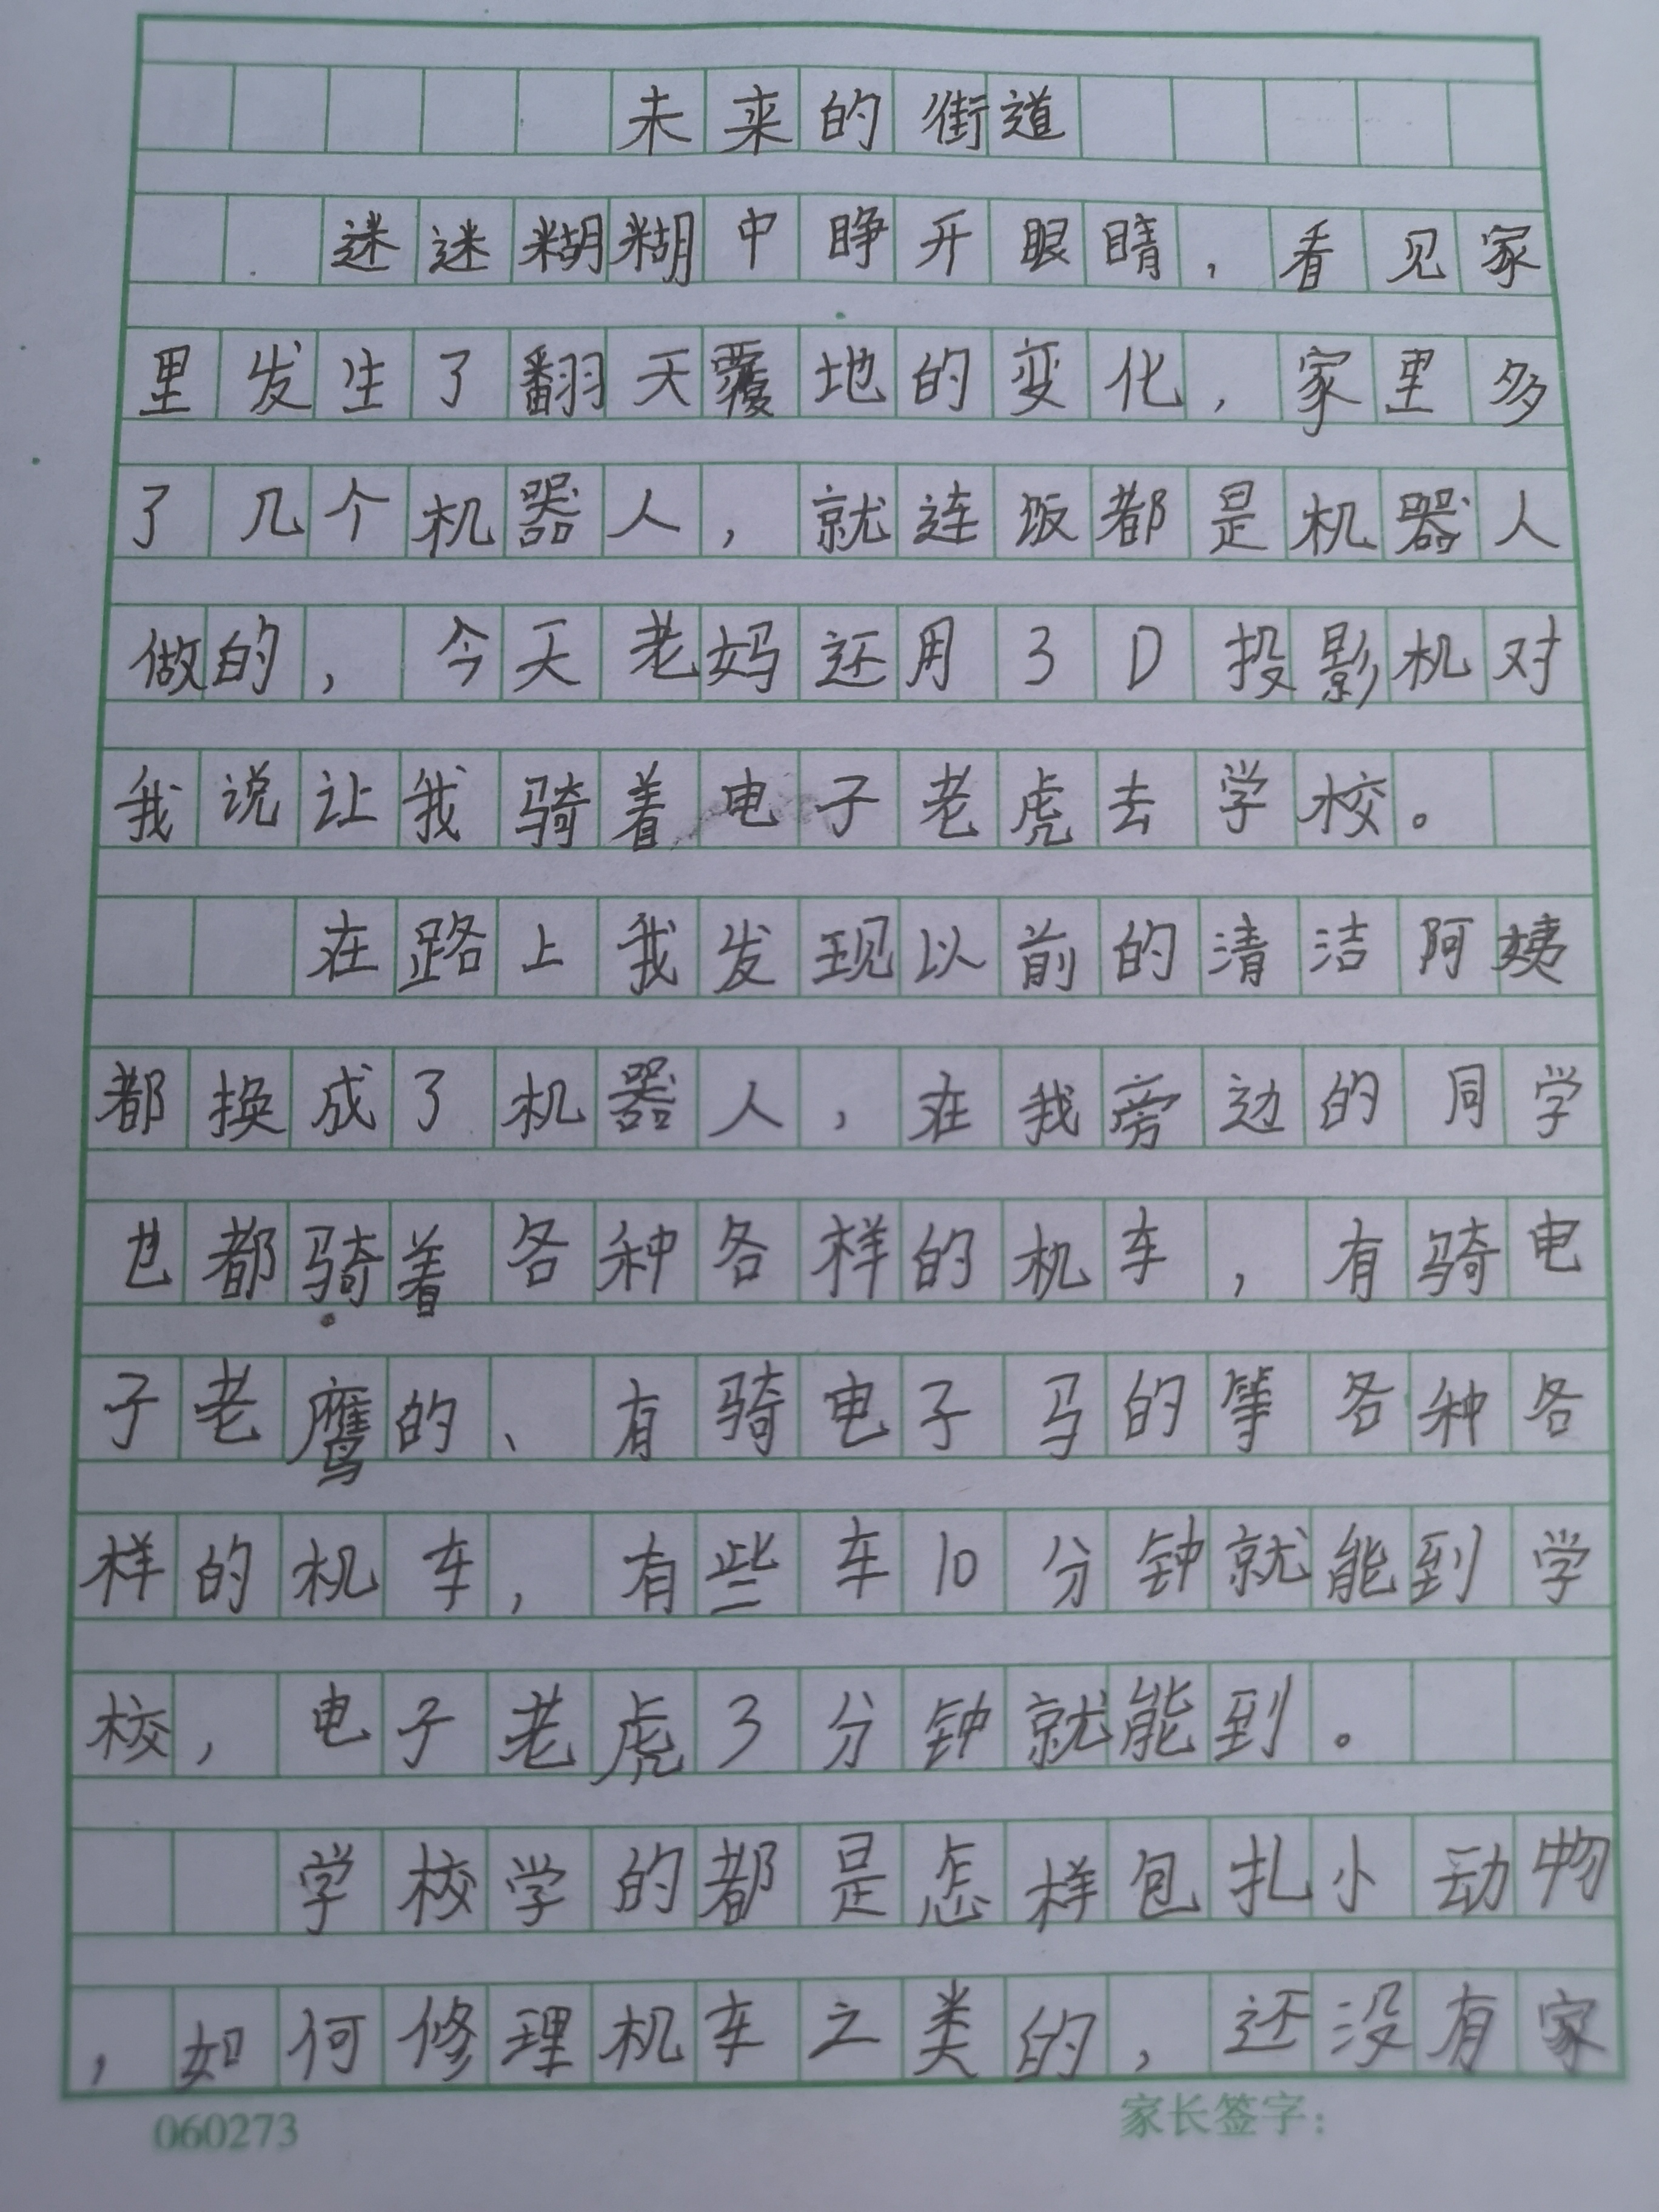 未来的街道
迷迷糊糊中睁开眼睛，看见家
里发生了翻天覆地的变化，家里多
了几个机器人，就连饭都是机器人
做的，今天老妈还用3D投影机对
我说让我骑着电子老虎去学校。
在路上我发现以前的清洁阿姨
都换成了机器人，在我旁边的同学
也都骑着各种各样的机车，有骑电
子老鹰的、有骑电子马的等各种各
样的机车，有些车10分钟就能到学
校，电子老虎3分钟就能到。
学校学的都是怎样包扎小动物
，如何修理机车之类的，还没有家
060273
家长签字：